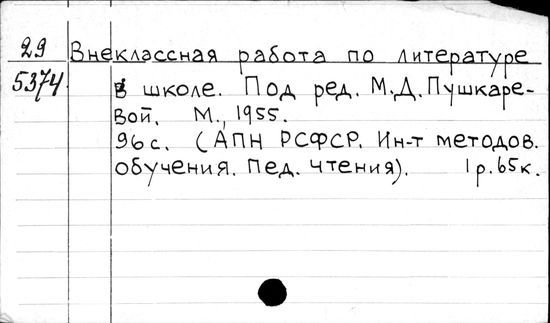 29 Внеклассная работа по литературе
5374 в школе. Под ред. М.Д. Пушкаре-
вой. М., 1955.
96с. (АПН РСФСР. Ин-т методов.
обучения. Пед. чтения). 1р.65к.